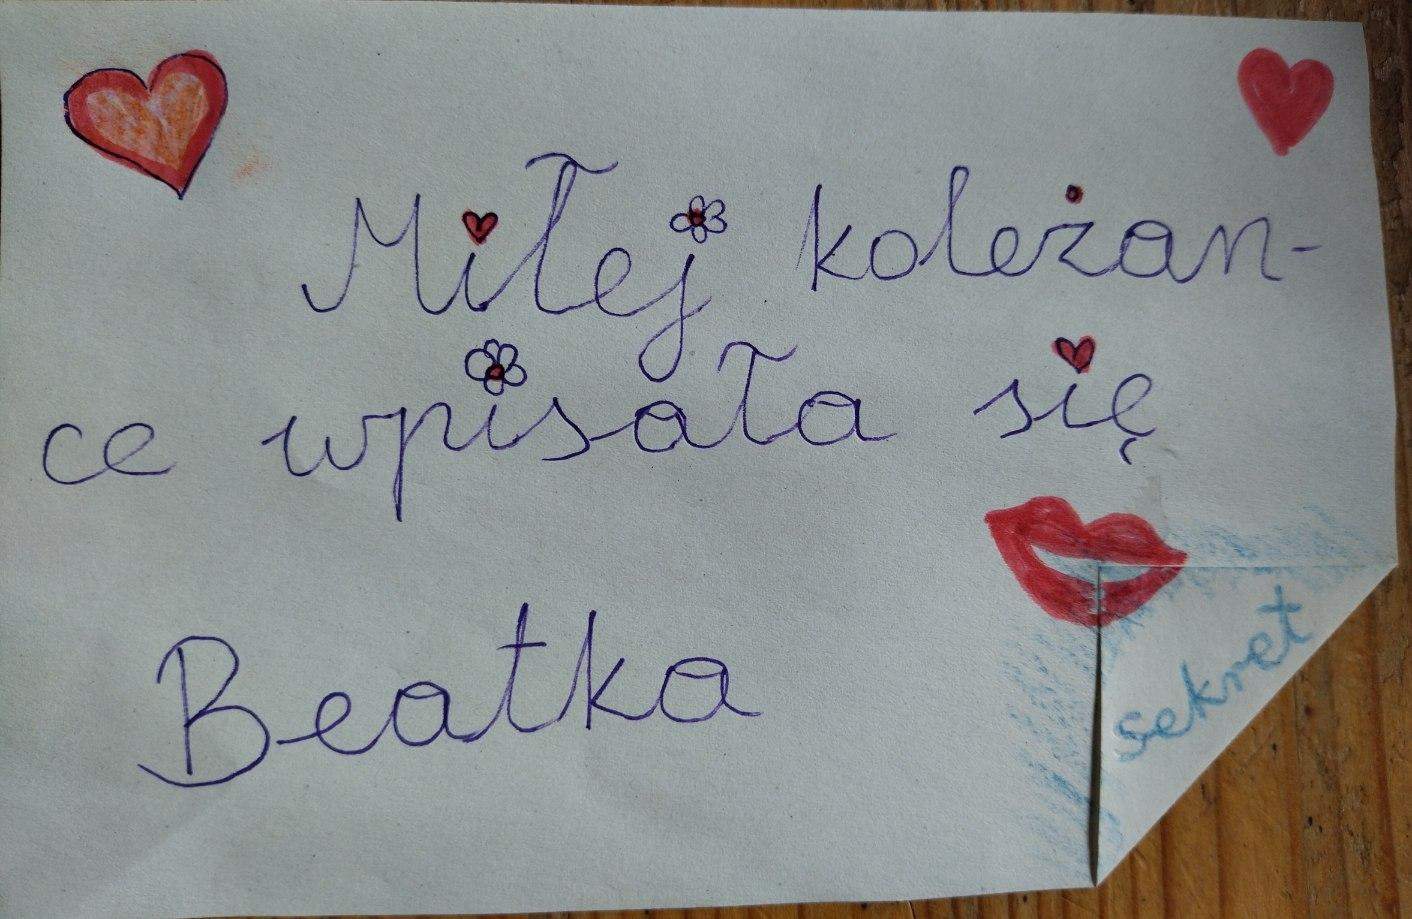 Miłej koleżan-
ce wpisała się
Beatka
sekret